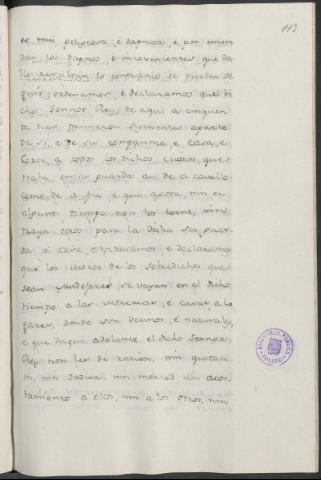 113
es mui peligrosa, e dapnosa, e por emen
dar los dapnos, e inconvenientes que de
lle resultan lo contrario se pueden se
guir; ordenamos, e declaramos quel di
cho Sennor Rey de aqui a cinquen
ta dias primeros siguientes aparte
de si, e de su compannia, e casa, e
Corte, a todos los dichos moros, que
traha en su guarda asi de a cavallo
como de a pie, e que agora, nin en
algunt tiempo non los torne, nin
traya otros para la dicha su guar
da, e casa, e ordenamos, e declaramos
que los moros de los sobredichos que
sean Mudejares se vayan en el dicho
tiempo a las Morerias, e casas, e lo
gares, donde son vecinos, e naturales,
e que dende adelante, el dicho Sennor
Rey non les de racion, nin quitaci
on, nin dadiva, nin merced, nin acos
tamiento a ellos, nin a los otros, nin
BIBLIOTECA PUBLICA
TOLEDO